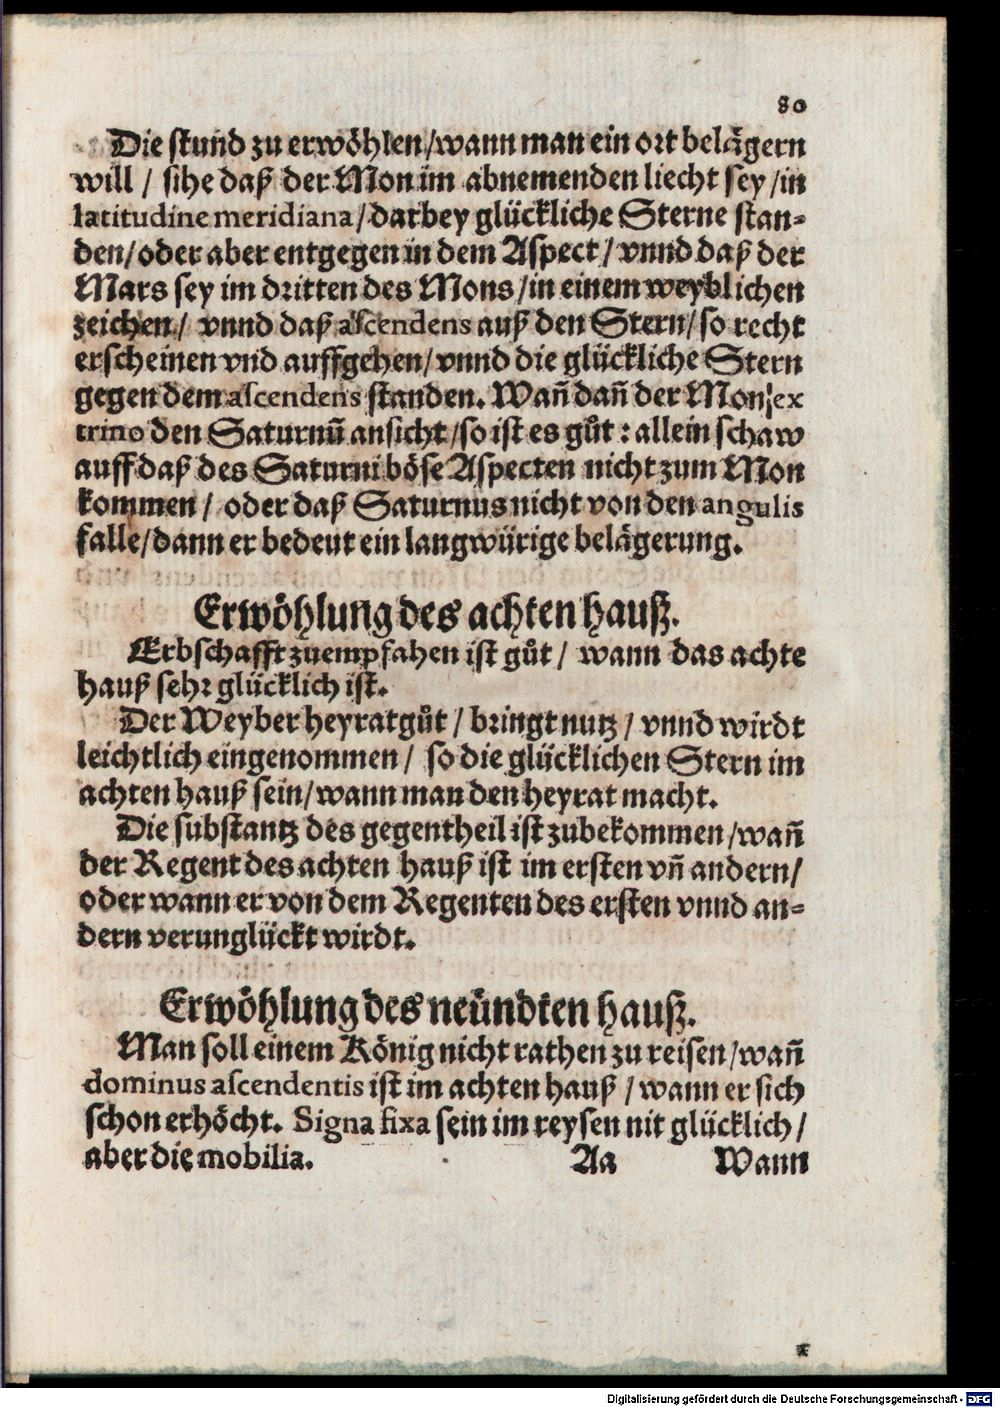 80
Die stund zu erwöhlen/wann man ein ort belägern
will / sihe daß der Mon im abnemenden liecht sey/in
latitudine meridiana/darbey glückliche Sterne stan-
den/oder aber entgegen in dem Aspect/ vnnd daß der
Mars sey im dritten des Mons/in einem weyblichen
zeichen/ vnnd daß ascendens auß den Stern/so recht
erscheinen vnd auffgehen/vnnd die glückliche Stern
gegen dem ascendens standen. Wañ dañ der Mon/ex
trino den Saturnū ansicht/so ist es gůt: allein schaw
auff daß des Saturni böse Aspecten nicht zum Mon
kommen/ oder daß Saturnus nicht von den angulis
falle/dann er bedeut ein langwürige belägerung.
Erwöhlung des achten hauß.
Erbschafft zuempfahen ist gůt/ wann das achte
hauß sehr glücklich ist.
Der Weyber heyrat gůt/ bringt nutz/ vnnd wirdt
leichtlich eingenommen/ so die glücklichen Stern im
achten hauß sein/wann man den heyrat macht.
Die substantz des gegentheil ist zubekommen/wañ
der Regent des achten hauß ist im ersten vñ andern/
oder wann er von dem Regenten des ersten vnnd an-
dern verunglückt wirdt.
Erwöhlung des neündten hauß.
Man soll einem König nicht rathen zu reisen/wañ
dominus ascendentis ist im achten hauß/wann er sich
schon erhöcht. Signa fixa sein im reysen nit glücklich/
aber die mobilia. Aa Wann
Digitalisierung gefördert durch die Deutsche Forschungsgemeinschaft - DFG